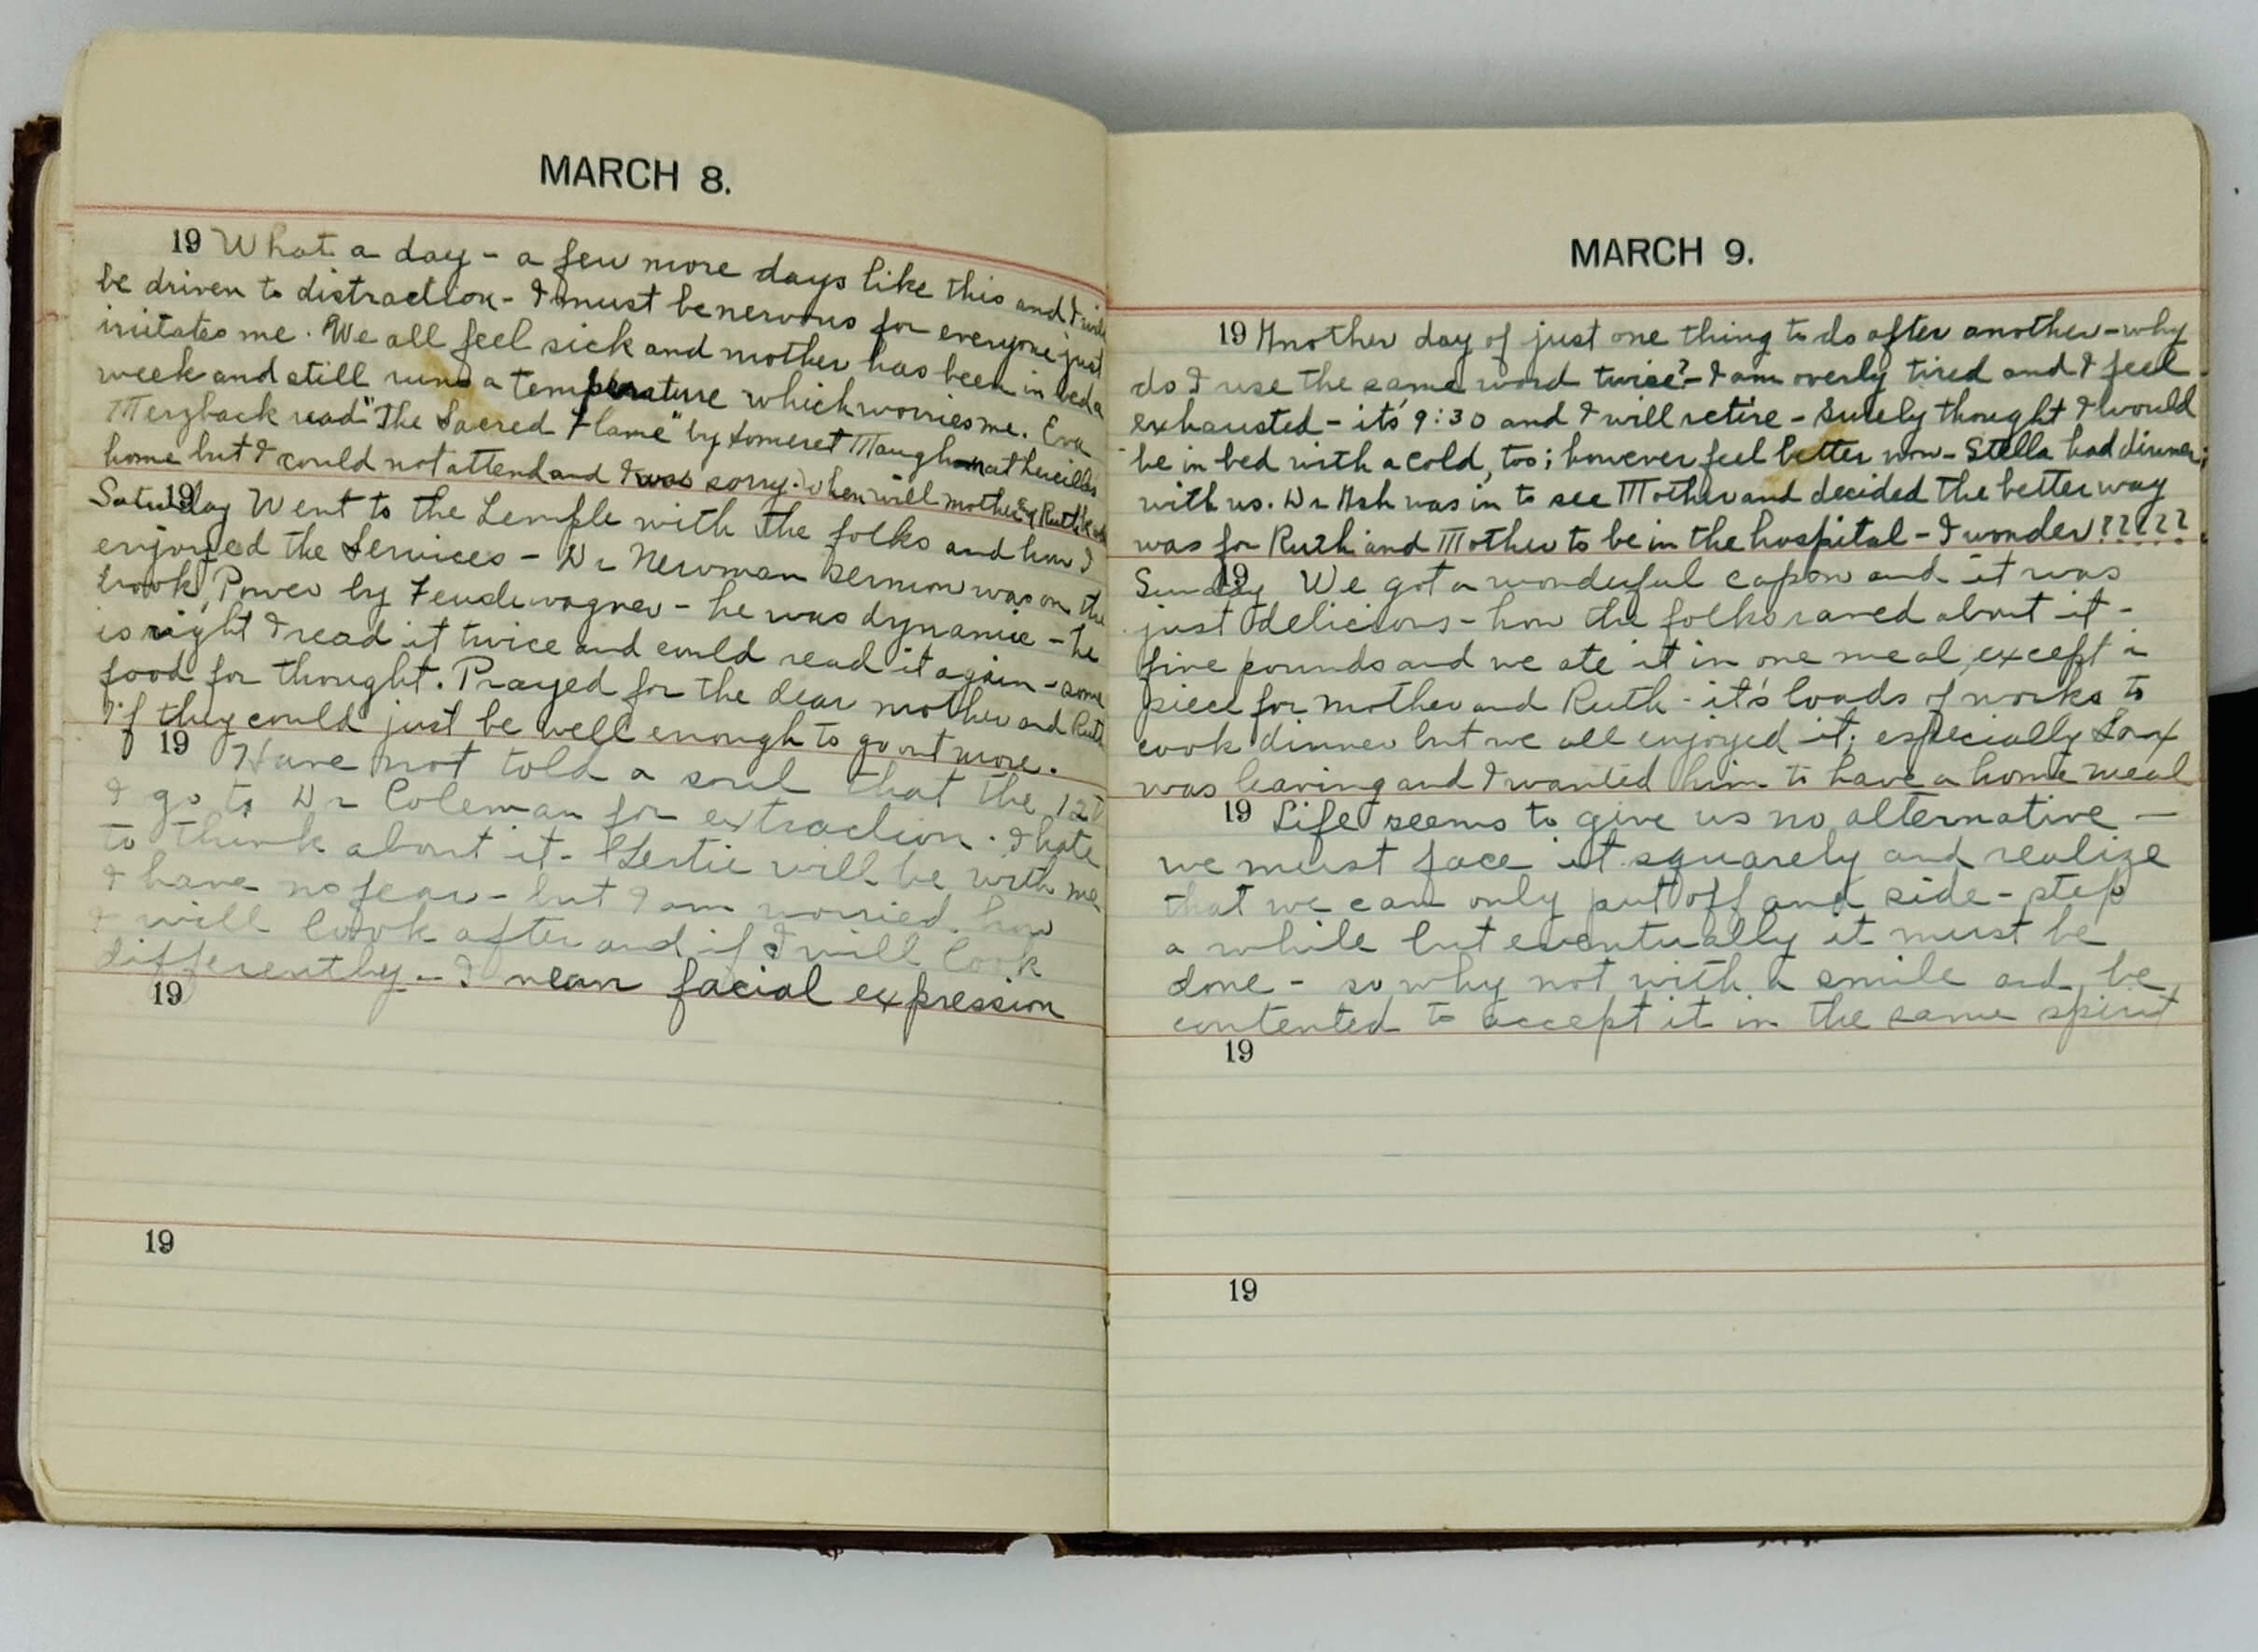 MARCH 8.
19 What a day - a few more days like this and I will
be driven to distraction - I must be nervous for everyone just
irritates me. We all feel sick and mother has been in bed a
week and still runs a temperature which worries me. Eva
Merzback read "The Sacred Flame" by Somerset Maugham at
home but I could not attend and I was sorry. When will mother & Ruth
19
Saturday Went to the Temple with the folks and how I
enjoyed the Services - Dr Newman sermon was on the
book, Power by - he was dynamic - he
is right I read it twice and could read it again - some
food for thought. Prayed for the dear mother and Ruth
if they could just be well enough to go out more.
19 Have not told a soul that the 12th
I go to Dr Coleman for extraction. I hate
to think about it - Gertie will be with me
I have no fear - but I am worried how
I will look after and if I will look
differently - I mean facial expression
19
19
MARCH 9.
19 Another day of just one thing to do after another - why
do I use the same word twice? - I am overly tired and I feel
exhausted - it's 9:30 and I will retire - Surely thought I would
be in bed with a cold, too; however feel better now - Stella had dinner
with us. Dr Ash was in to see Mother and decided the better way
was for Ruth and Mother to be in the hospital - I wonder?????
19
Sunday We got a wonderful capon and it was
just delicious - how the folks raved about it -
five pounds and we ate it in one meal, except a
piece for mother and Ruth - it's loads of works to
cook dinner but we all enjoyed it; especially
was leaving and I wanted him to have a home meal
19 Life seems to give us no alternative -
we must face it squarely and realize
that we can only put off and side-step
a while but eventually it must be
done - so why not with a smile and be
contented to accept it in the same spirit
19
19